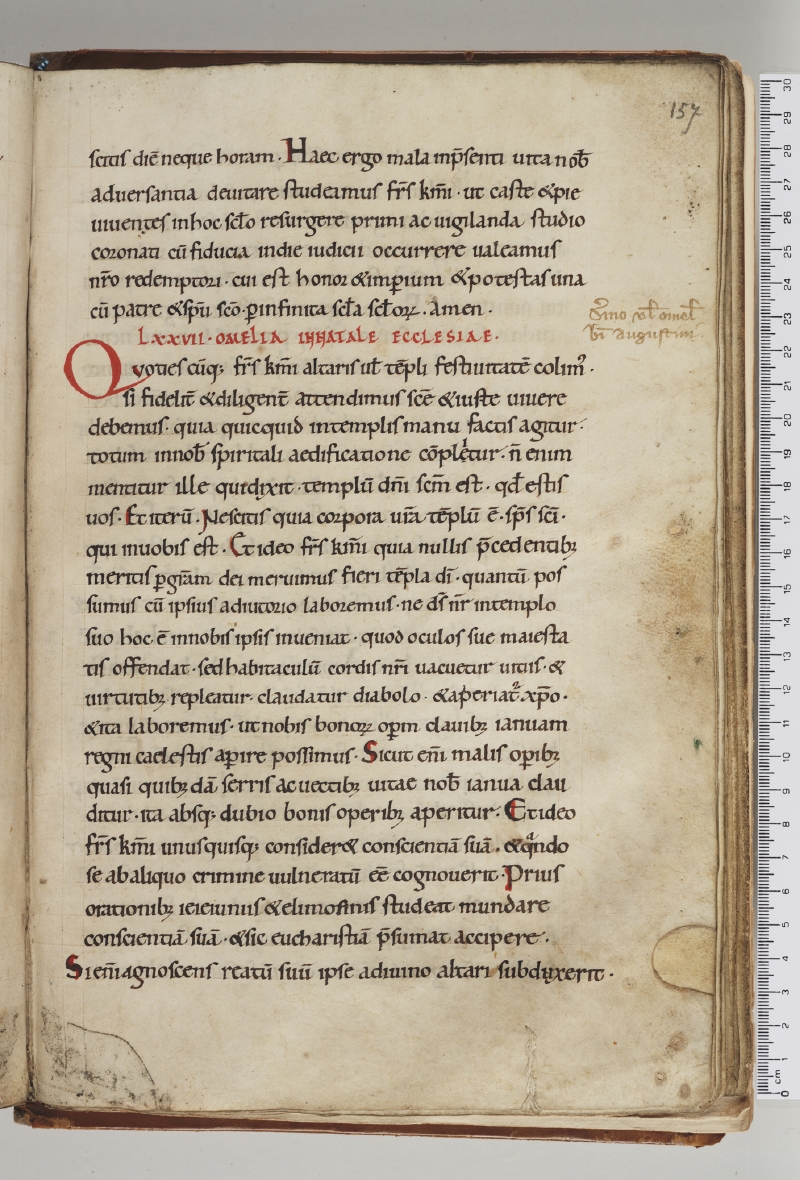 157
scitis diē neque horam. Haec ergo mala inp̄senti uita nob̄
aduersantia deuitare studeamus fr̄s km̄i. ut caste &pie
uiuentes inhoc scl̄o resurgere primi ac uigilanda studio
coronati cū fiducia indie iudicii occurrere ualeamus
nr̄o redemptori. cui est honor &imꝑium &potestas una
cū patre &sp̄u sc̄o. ꝑinfinita scl̄a scl̄oꝝ. Amen.
Lxxvii. omelia innatale ecclesiae.
Quoties cūq; fr̄s km̄i altaris ut̄ tēpli festiuitatē colimꝰ.
si fidelit̄ &diligent̄ attendimus sc̄e &iuste uiuere
debemus. quia quicquid intemplis manu factis agitur.
totum innob̄ spiritali aedificatione cōpletur. n̄ enim
mentitur ille qui dixit. templū dn̄i sc̄m est. qd̄ estis
uos. Et iterū. Nescitis quia corpora ur̄a tēplū ē. sp̄s sc̄i.
qui inuobis est. Et ideo fr̄s km̄i quia nullis p̄cedentib;
meritis ꝑ gr̄am dei meruimus fieri tēpla dī. quantū pos
sumus cū ipsius adiutorio laboremus. ne ds̄ nr̄ intemplo
suo hoc ē innobis ipsis inueniat. quod oculos sue maiesta
tis offendat. sed habitaculū cordis nr̄i uacuetur uitiis. &
uirtutib; repleatur. claudatur diabolo. &aperiat᷑ xp̄o.
&ita laboremus. ut nobis bonoꝝ oꝑm clauib; ianuam
regni caelestis aꝑire possimus. Sicut em̄i malis oꝑib;
quasi quib;dā serris ac uectib; uitae nob̄ ianua clau
ditur. ita absq; dubio bonis operib; aperitur. Et ideo
fr̄s km̄i unusquisq; consider& conscientiā suā. &qͣndo
se abaliquo crimine uulneratū eē cognouerit. Prius
orationib; ieieiuniis &elimosinis studeat mundare
conscientiā suā. &sic eucharistiā p̄sumat accipere.
Si em̄i agnoscens reatū suū ipse adiuino altari subduxerit.
Sermo ut̄ omel̄
b̄i augustini